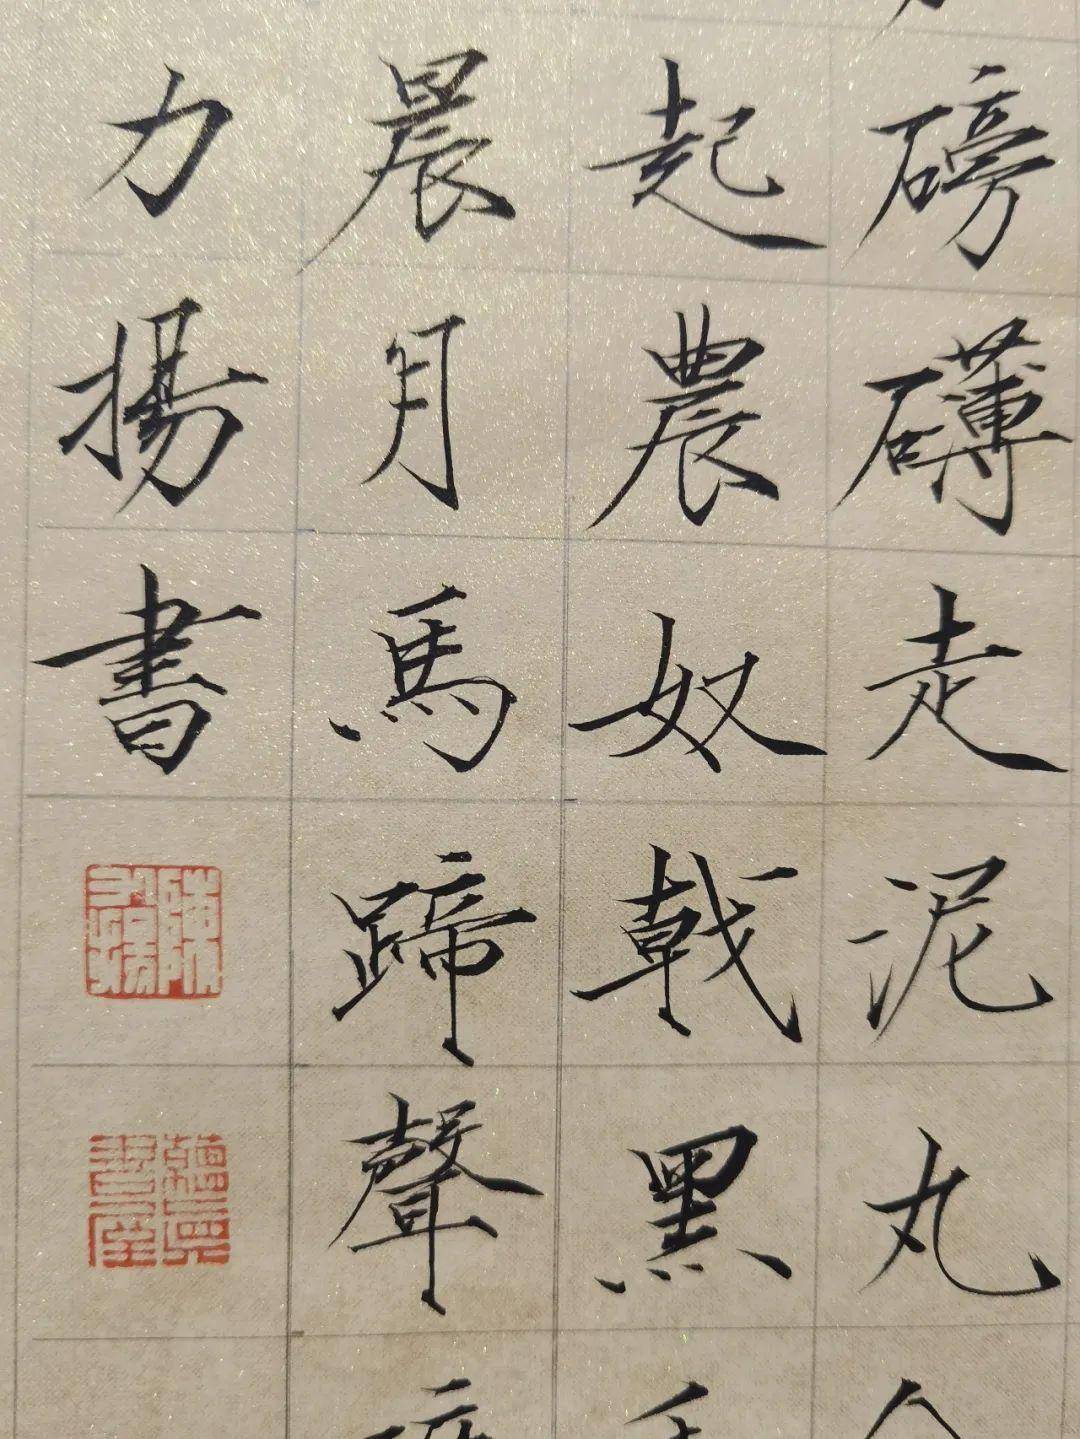 磅礴走泥丸
起農奴戟黑
晨月馬蹄聲
力揚書
陳力揚